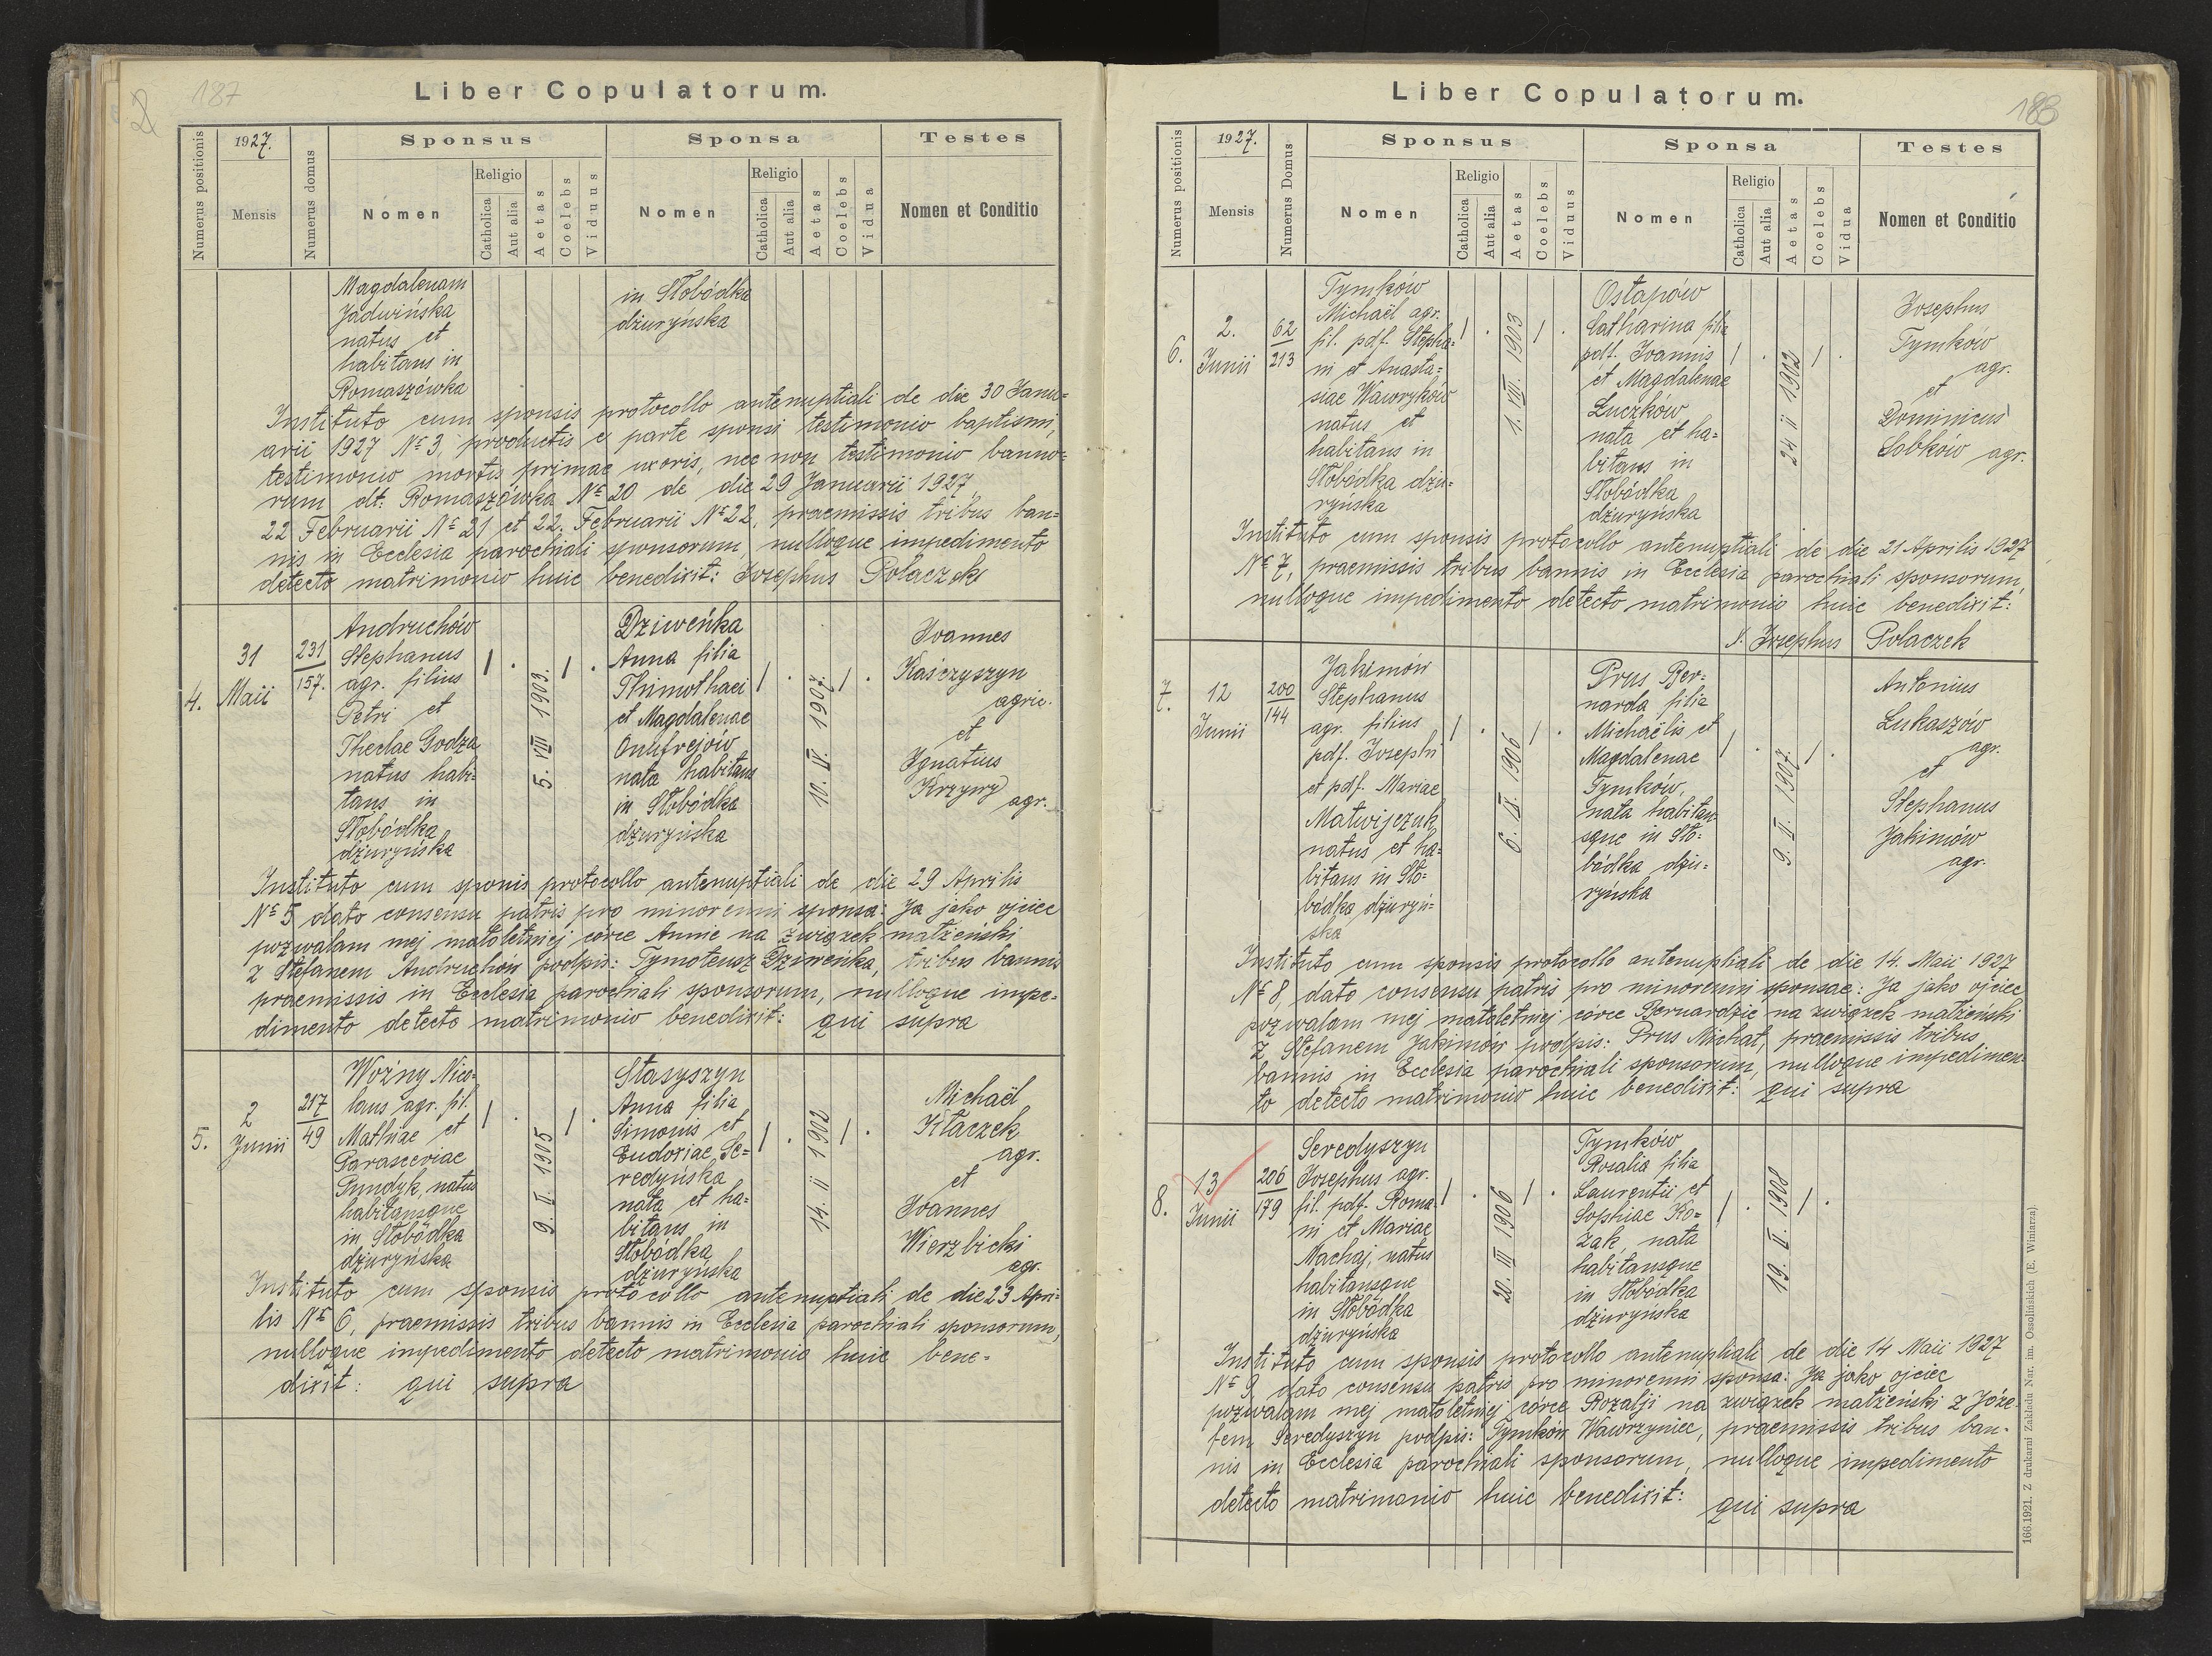 187
2
Liber Copulatorum.
Numerus positionis
1927.
Mensis
Numerus domus
Sponsus
Nomen
Religio
Catholica
Aut alia
Aetas
Coelebs
Viduus
Sponsa
Nomen
Religio
Catholica
Aut alia
Aetas
Coelebs
Vidua
Testes
Nomen et Conditio
Magdalenam
Jadwińska
natus et
habitans in
Romaszówka
in Słobódka
dżuryńska
Instituto cum sponsis protocollo antenuptiali de die 30 Janu=
arii 1927 № 3, productis e parte sponsi testimonio baptismi,
testimonio mortis primae uxoris, nec non testimonio banno=
rum dt. Romaszówka № 20 de die 29 Januarii 1927
22 Februarii № 21 et 22. Februarii № 22, praemissis tribus ban=
nis in Ecclesia parochiali sponsorum, nulloque impedimento
detecto matrimonio huic benedixit: Josephus Polaczek
4.
31
Maii
231
157.
Andruchów
Stephanus
agr. filius
Petri et
Theclae Godza
natus habi=
tans in
Słobódka
dżuryńska
1 .
5. VIII 1903.
1 .
Dziweńka
Anna filia
Thimothaei
et Magdalenae
Onufrejów
nata habitans
in Słobódka
dżuryńska
1 .
10. IV. 1907.
1 .
Joannes
Kaśczyszyn
agric.
et
Ignatius
Krzywy
agr.
Instituto cum sponis protocollo antenuptiali de die 29 Aprilis
№ 5 dato consensu patris pro minorenni sponsa: Ja jako ojciec
pozwalam mej małoletniej córce Annie na związek małżeński
z Stefanem Andruchów podpis: Tymoteusz Dziweńka, tribus bannis
praemissis in Ecclesia parochiali sponsorum, nulloque impe=
dimento detecto matrimonio benedixit: qui supra
5.
2
Junii
217
49
Woźny Nico=
laus agr. fil.
Mathiae et
Parasceviae
Pundyk, natus
habitansque
in Słobódka
dżuryńska
1 .
9. II. 1905
1 .
Stasyszyn
Anna filia
Simonis et
Eudoxiae Se=
redyńska
nata et ha=
bitans in
Słobódka
dżuryńska
1 .
14. II 1902
1 .
Michaël
Kłaczek
agr.
et
Joannes
Wierzbicki
agr.
Instituto cum sponsis protocollo antenuptiali de die 23 Apri=
lis № 6, praemissis tribus bannis in Ecclesia parochiali sponsorum,
nulloque impedimento detecto matrimonio huic bene=
dixit: qui supra
188
Liber Copulatorum.
Numerus positionis
1927.
Mensis
Numerus Domus
Sponsus
Nomen
Religio
Catholica
Aut alia
Aetas
Coelebs
Viduus
Sponsa
Nomen
Religio
Catholica
Aut alia
Aetas
Coelebs
Vidua
Testes
Nomen et Conditio
6.
2.
Junii
62
213
Tymków
Michaël agr.
fil. pdf. Stepha=
ni et Anasta=
siae Wawryków
natus et
habitans in
Słobódka dżu=
ryńska
1 .
1. VII. 1903
1 .
Ostapów
Catharina filia
pdf. Joannis
et Magdalenae
Łuczków
nata et ha=
bitans in
Słobódka
dżuryńska
1 .
24 II 1902
1 .
Josephus
Tymków
agr.
et
Dominicus
Sobków agr.
Instituto cum sponsis protocollo antenuptiali de die 21 Aprilis 1927
№ 7, praemissis tribus bannis in Ecclesia parochiali sponsorum,
nulloque impedimento detecto matrimonio huic benedixit:
Josephus Polaczek
7.
12
Junii
200
144
Jakimów
Stephanus
agr. filius
pdf. Josephi
et pdf. Mariae
Matwijczuk
natus et ha=
bitans in Sło=
bódka dżuryń=
ska
1 .
6. IX. 1906
1 .
Prus Ber=
narda filia
Michaëlis et
Magdalenae
Tymków,
nata habitan=
sque in Sło=
bódka dżu=
ryńska
1 .
9. II. 1907.
1 .
Antonius
Łukaszów
agr.
et
Stephanus
Jakimów
agr.
Instituto cum sponsis protocollo antenuptiali de die 14. Maii 1927
№ 8, dato consensu patris pro minorenni sponsae: Ja jako ojciec
pozwalam mej małoletniej córce Bernardzie na związek małżeński
z Stefanem Jakimów podpis: Prus Michał, praemissis tribus
bannis in Ecclesia parochiali sponsorum, nulloque impedimen=
to detecto matrimonio huic benedixit: qui supra
8.
13
Junii
206
179
Seredyszyn
Josephus agr.
fil. pdf. Roma=
ni et Mariae
Machaj, natus
habitansque
in Słobódka
dżuryńska
1 .
20. III 1906
1 .
Tymków
Rosalia filia
Laurentii et
Sophiae Ko=
zak, nata
habitansque
in Słobódka
dżuryńska
1 .
19. II. 1908
1 .
Instituto cum sponsis protocollo antenuptiali de die 14 Maii 1927
№ 9, dato consensu patris pro minorenni sponsa: Ja jako ojciec
pozwalam mej małoletniej córce Rozalji na związek małżeński z Józe
fem Seredyszyn podpis: Tymków Wawrzyniec, praemissis tribus ban=
nis in Ecclesia parochiali sponsorum, nulloque impedimento
detecto matrimonio huic benedixit: qui supra
166.1921. Z drukarni Zakładu Nar. im. Ossolińskich (E. Winiarz)